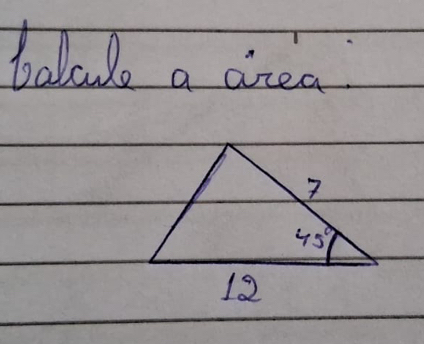 Calcule a área:
7
45°
12